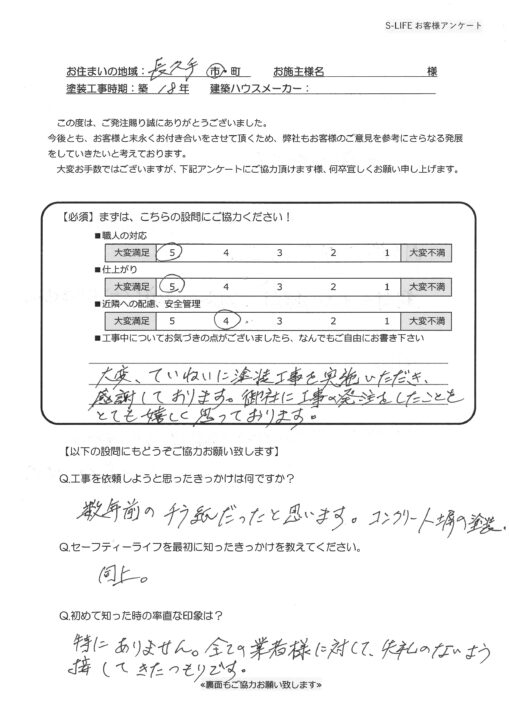 S-LIFE お客様アンケート
お住まいの地域: 長久手 市・町 お施主様名 様
塗装工事時期:築 18 年 建築ハウスメーカー:
この度は、ご発注賜り誠にありがとうございました。
今後とも、お客様と末永くお付き合いをさせて頂くため、弊社もお客様のご意見を参考にさらなる発展
をしていきたいと考えております。
大変お手数ではございますが、下記アンケートにご協力頂けます様、何卒宜しくお願い申し上げます。
【必須】まずは、こちらの設問にご協力ください!
■職人の対応
大変満足 5 4 3 2 1 大変不満
■仕上がり
大変満足 5 4 3 2 1 大変不満
■近隣への配慮、安全管理
大変満足 5 4 3 2 1 大変不満
■工事中についてお気づきの点がございましたら、なんでもご自由にお書き下さい
大変、ていねいに塗装工事を実施いただき、
感謝しております。御社に工事の発注をしたことを
とても嬉しく思っております。
【以下の設問にもどうぞご協力お願い致します】
Q.工事を依頼しようと思ったきっかけは何ですか?
数年前のチラ紙だったと思います。コンクリート塀の塗装.
Q.セーフティーライフを最初に知ったきっかけを教えてください。
同上。
Q.初めて知った時の率直な印象は?
特にありません。全ての業者様に対して、失礼のないよう
接してきたつもりです。
≪裏面もご協力お願い致します≫